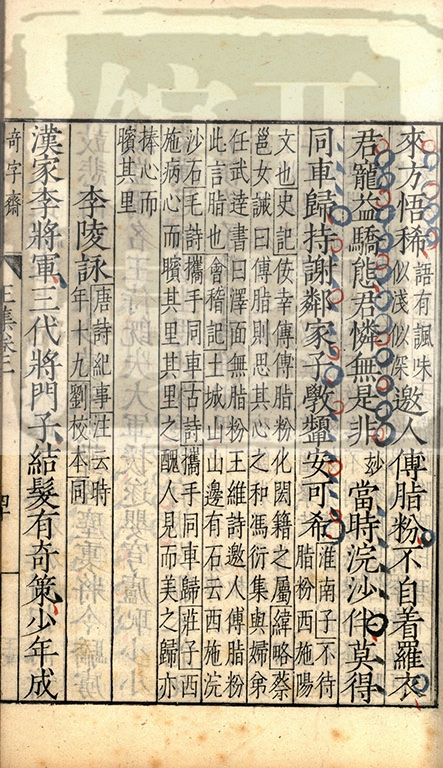 來方悟稀語有諷味似淺似深邀人傅脂粉不自着羅衣
君寵益驕態君憐無是非妙當時浣沙伴莫得
同車歸持謝鄰家子斆顰安可希淮南子不待脂粉西施陽
文也史記佞幸傳傅脂粉化閎籍之屬緯略蔡
邕女誡曰傅脂則思其心之和馮衍集與婦弟
任武達書曰澤面無脂粉王維詩邀人傅脂粉
此言脂也會稽記土城山山邊有石云西施浣
沙石毛詩攜手同車古詩攜手同車歸莊子西
施病心而矉其里其里之醜人見而美之歸亦
捧心而矉其里
李陵詠唐詩紀事注云時年十九劉校本同
漢家李將軍三代將門子結髮有奇策少年成
奇字齋
王集卷二